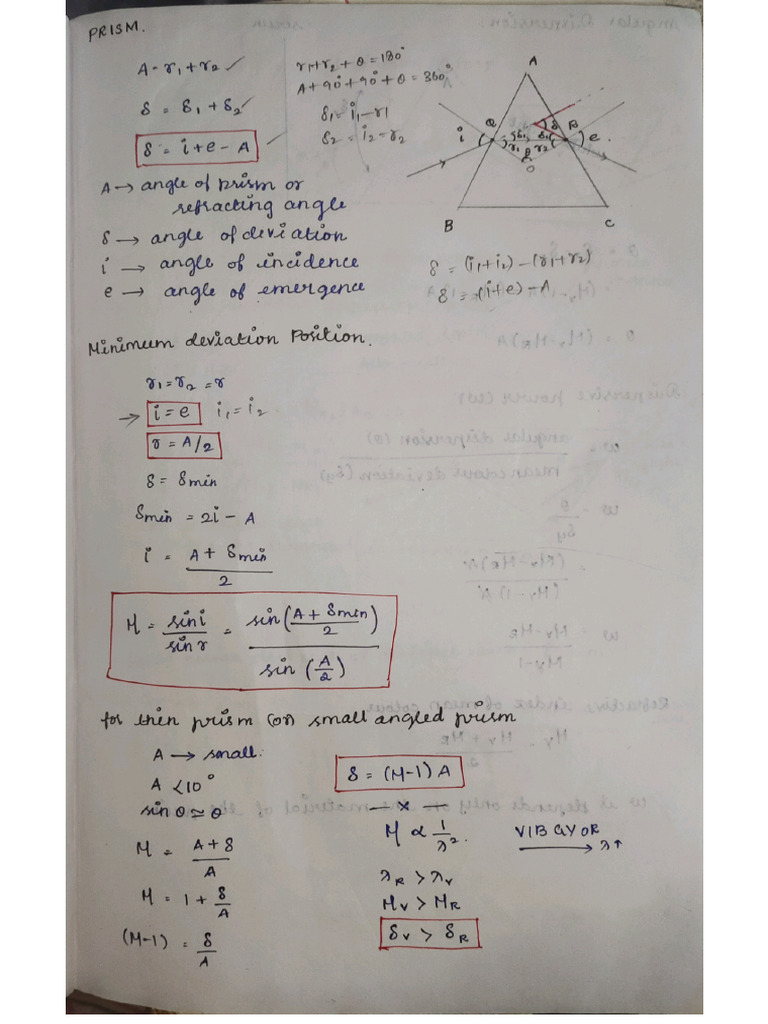 PRISM.
A = r₁ + r₂ ✓
δ = δ₁ + δ₂ ✓
δ = i + e - A
r₁ + r₂ + θ = 180°
A + 90° + 90° + θ = 360°
δ₁ = i₁ - r₁
δ₂ = i₂ - r₂
A
Q
δ
R
i
δ₁
δ₂
e
r₁
r₂
B
C
A → angle of prism or
refracting angle
δ → angle of deviation
i → angle of incidence
e → angle of emergence
δ = (i₁ + i₂) - (r₁ + r₂)
δ = (i + e) - A
Minimum deviation Position.
r₁ = r₂ = r
→ i = e i₁ = i₂
r = A/2
δ = δmin
δmin = 2i - A
i = (A + δmin)/2
M = sin i / sin r = sin((A + δmin)/2) / sin(A/2)
for thin prism (or) small angled prism
A → small.
A < 10°
sin θ ≃ θ
M = (A + δ)/A
M = 1 + δ/A
(M-1) = δ/A
δ = (M-1) A
— x —
M ∝ 1/λ².
VIBGYOR
→ λ↑
λR > λV
MV > MR
δV > δR